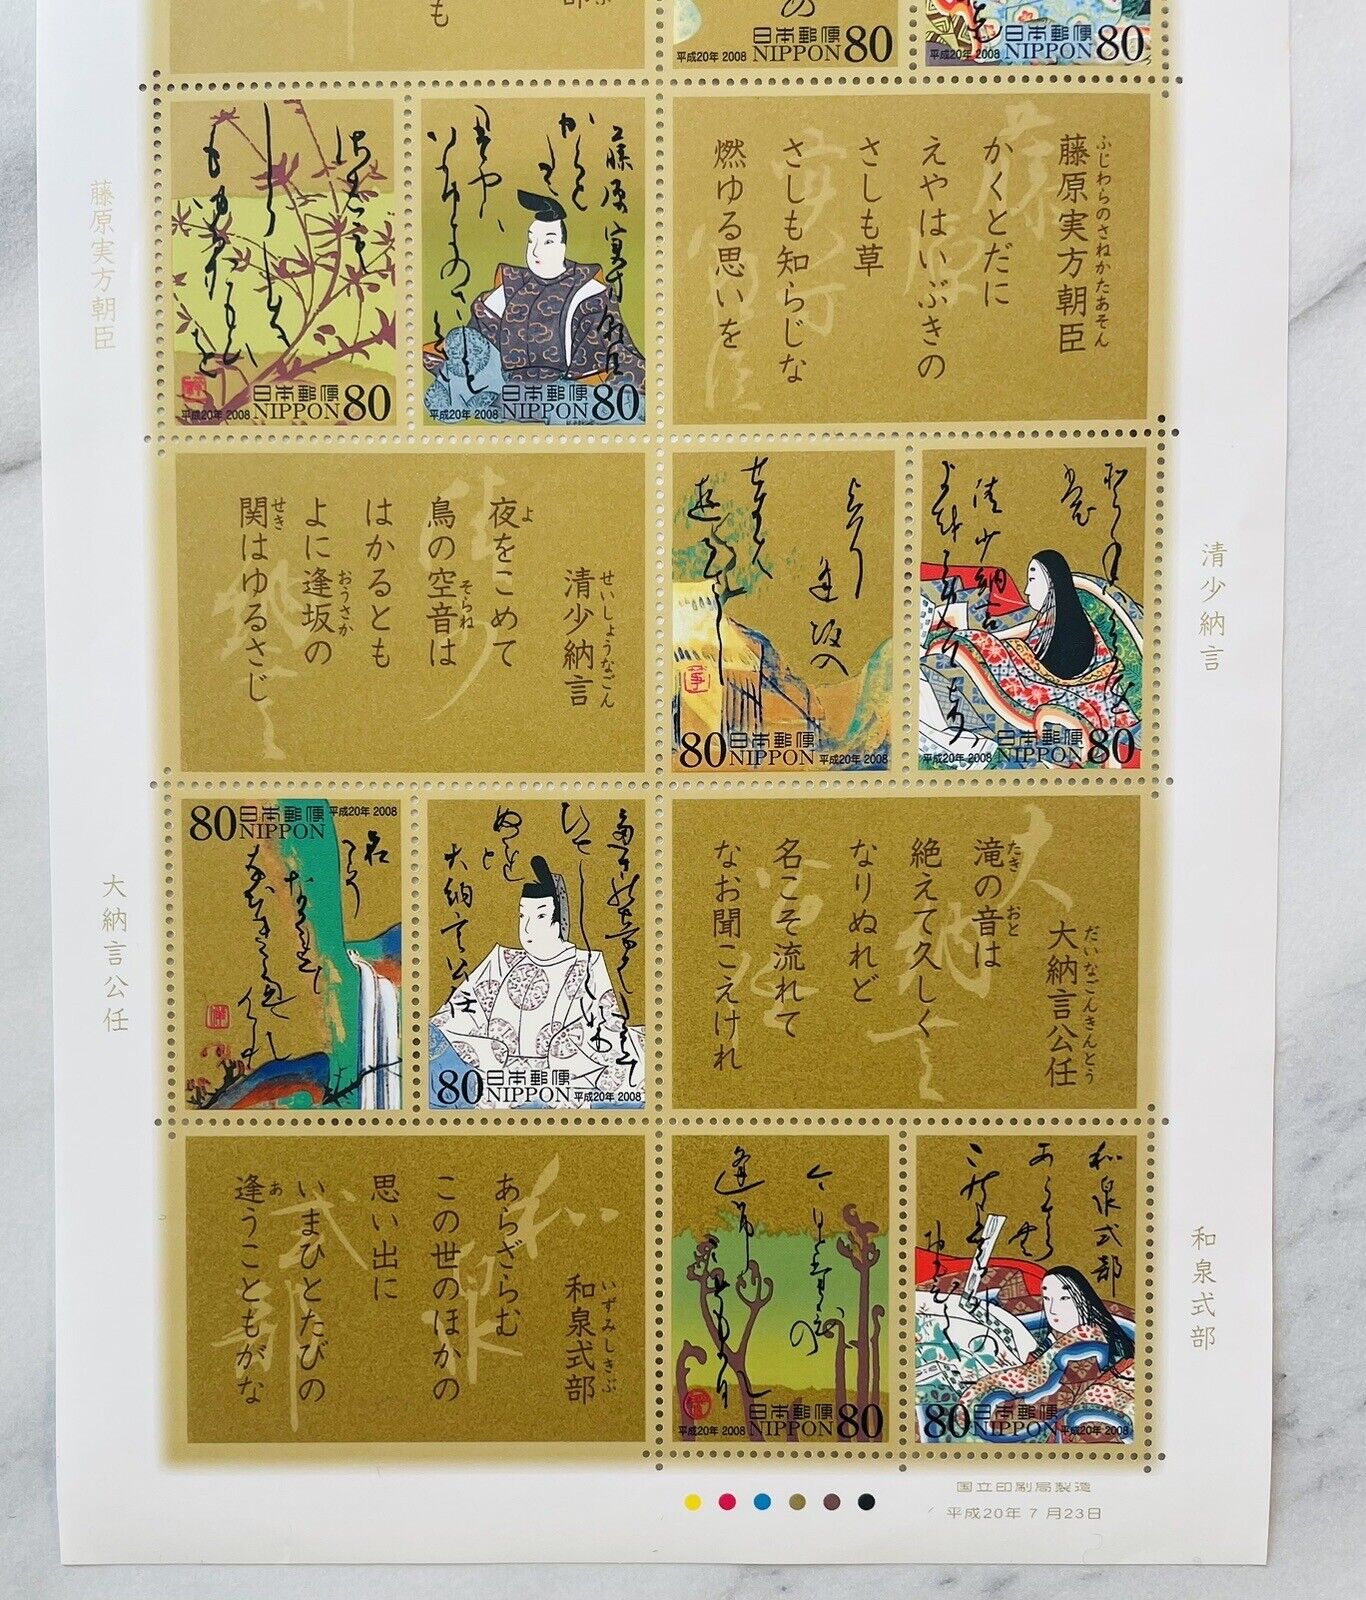 も
日本郵便
NIPPON 80
平成20年 2008
日本郵便
NIPPON 80
平成20年 2008
藤原実方朝臣
日本郵便
NIPPON 80
平成20年 2008
藤原実方朝臣
日本郵便
NIPPON 80
平成20年 2008
ふじわらのさねかたあそん
藤原実方朝臣
かくとだに
えやはいぶきの
さしも草
さしも知らじな
燃ゆる思いを
せいしょうなごん
清少納言
夜をこめて
よ
鳥の空音は
そらね
はかるとも
よに逢坂の
おうさか
関はゆるさじ
せき
80 日本郵便
NIPPON 平成20年 2008
清少納言
平成20年 2008
日本郵便
NIPPON 80
清少納言
大納言公任
80 日本郵便
NIPPON
平成20年 2008
大納言公任
80 日本郵便
NIPPON 平成20年 2008
だいなごんきんとう
大納言公任
滝の音は
たき おと
絶えて久しく
なりぬれど
名こそ流れて
なお聞こえけれ
いずみしきぶ
和泉式部
あらざらむ
この世のほかの
思い出に
いまひとたびの
逢うこともがな
あ
平成20年 2008
日本郵便
NIPPON 80
和泉式部
80 日本郵便
NIPPON 平成20年 2008
和泉式部
国立印刷局製造
平成20年 7 月23日